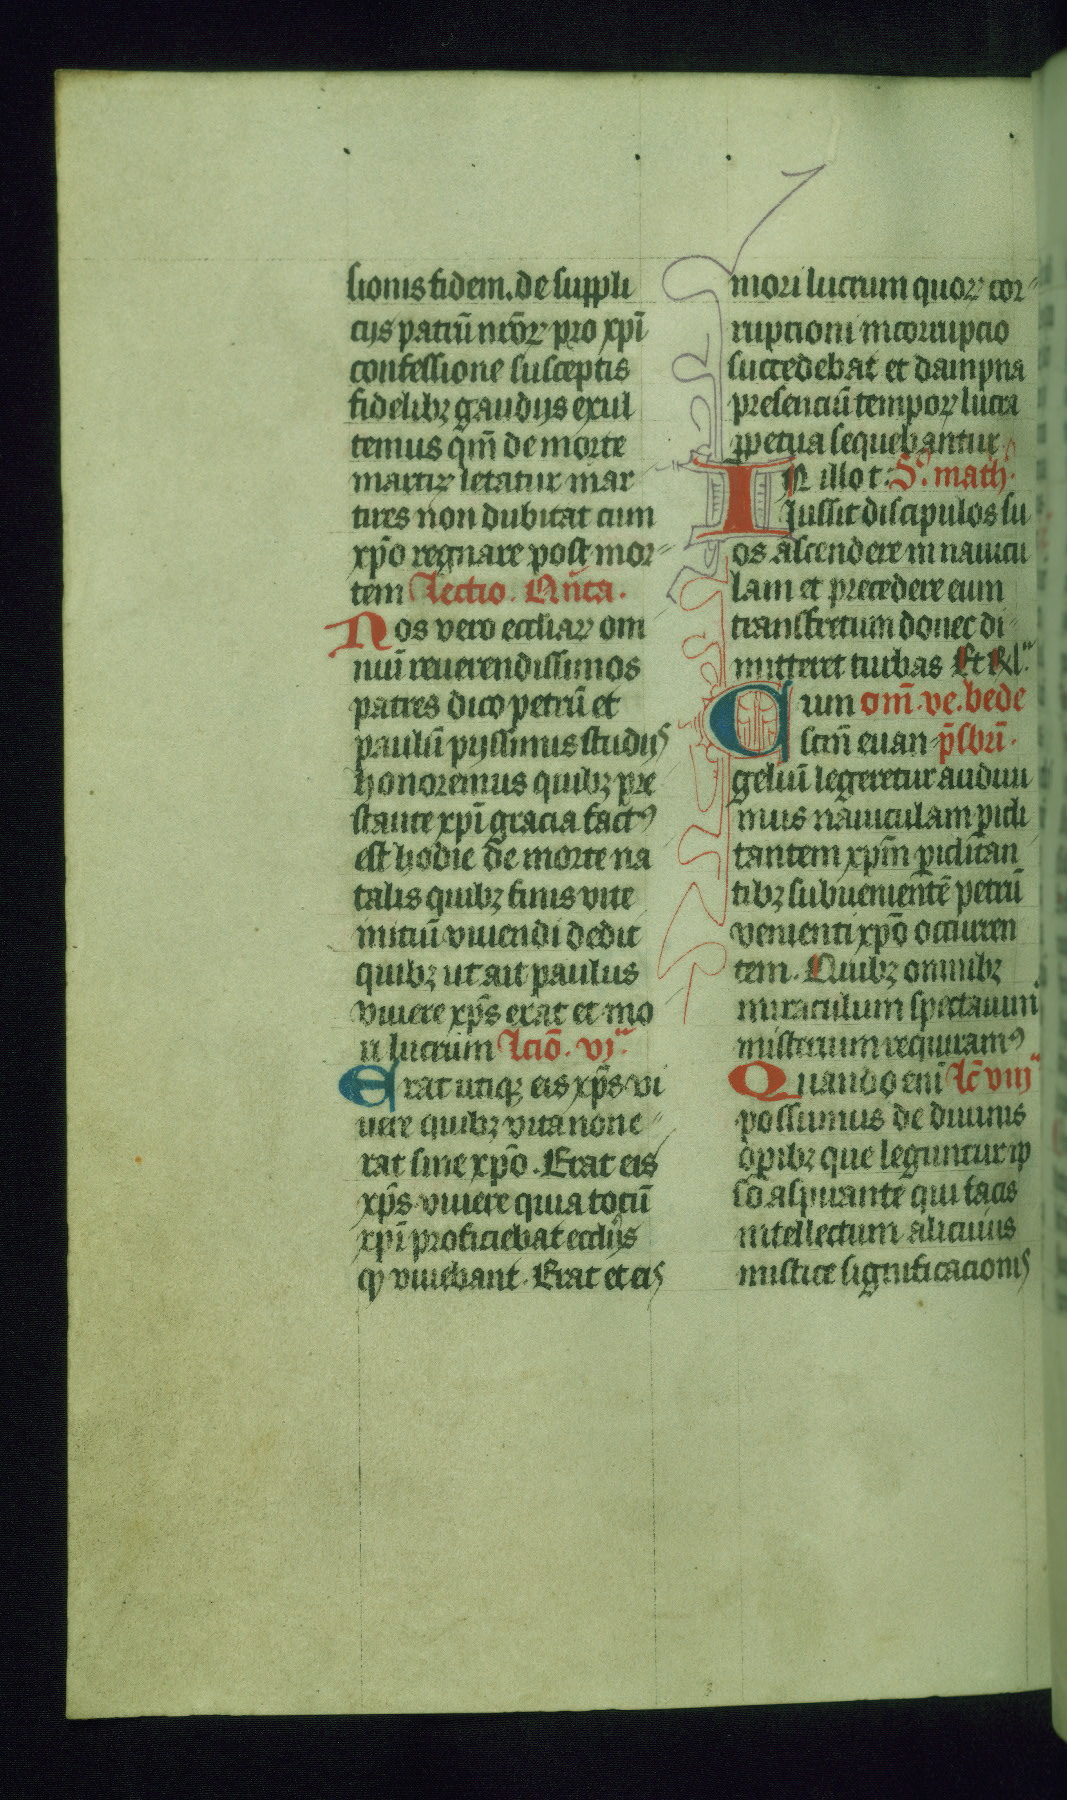 sionis fidem. de suppli
cijs patrū nr̄oꝝ pro xp̄i
confessione susceptis
fidelibꝫ gaudijs exul
temus qm̄ de morte
martiꝝ letatur mar
tires non dubitat cum
xp̄o regnare post mor
tem Lectio. Qūta.
Nos vero eccliaꝝ om
niū reuerendissimos
patres dico petrū et
paulū pijssimus studijs
honoremus quibꝫ pre
stante xp̄i gracia factꝰ
est hodie de morte na
talis quibꝫ finis vite
initiū viuendi dedit
quibꝫ ut ait paulus
viuere xp̄s erat et mo
ri lucrum Lcīo. vj
Erat utiqꝫ eis xp̄s vi
uere quibꝫ vita non e
rat sine xp̄o. Erat eis
xp̄s viuere quia totū
xp̄i proficiebat ecclijs
qͥ viuebant. Erat et eis
mori lucrum quoꝝ cor
ruptioni incorruptio
succedebat et dampna
presenciū tempoꝝ lucra
ꝑpetua sequebantur
IN illo t: Sͦ. math.
Iussit discipulos su
os ascendere in nauicu
lam et precedere eum
transfretum donec di
mitteret turbas Et Rl
Cum om̄. ve. bede
scm̄ euan p̄sbrī.
geliū legeretur audiui
mus nauiculam ꝑicli
tantem xp̄m ꝑiclitan
tibꝫ subuenientē petrū
venienti xp̄o occurren
tem. Quibꝫ omnibꝫ
miraculum spectauim
misterium requiramꝰ
Quando enī Lc̄ viij
possumus de diuinis
oꝑibꝫ que leguntur ip
so aspirante qui facis
intellectum alicuius
mistice significacionis